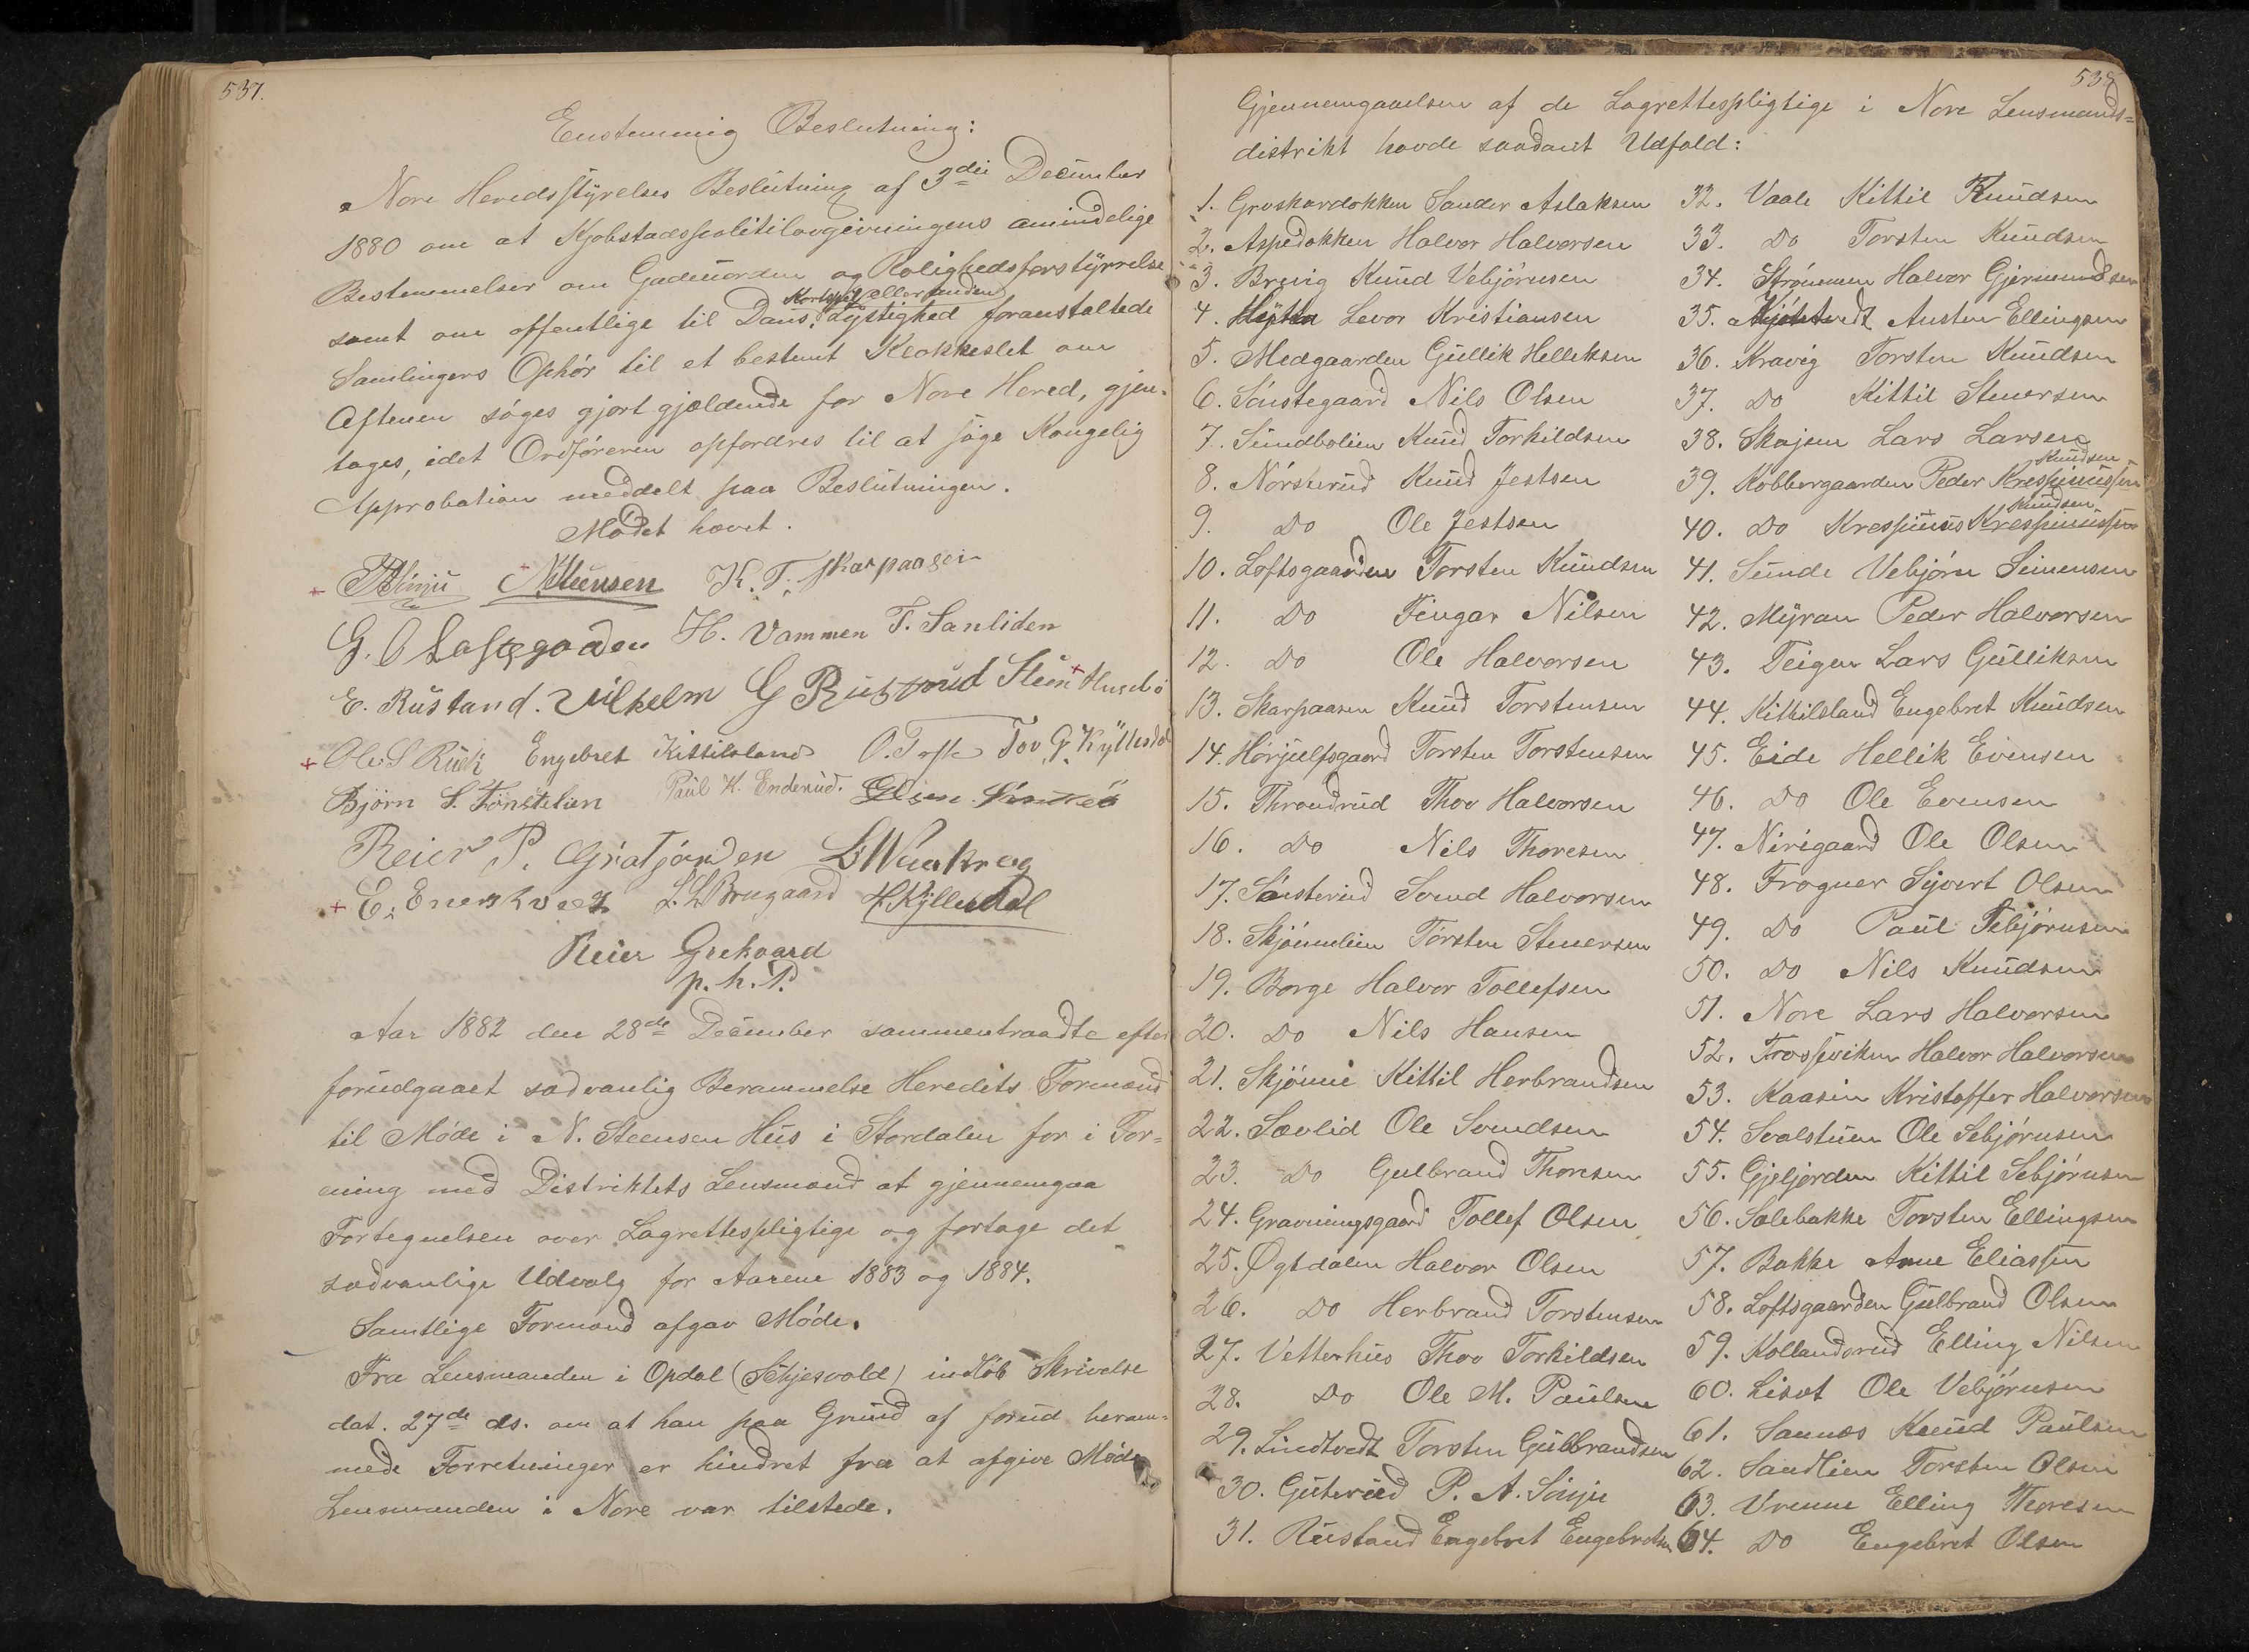 537.
Enstemmig Beslutning:
Nore Heredsstyrelses Beslutning af 3die December
1880 om at Kjøbstadspolitilovgivningens amindelige
Bestemmelser om Gadeuorden og Rolighedsforstyrrelse
Kortspil eller anden
samt om offentlige til Dans, Lystighed foranstaltede
Samlingers Ophör til et bestemt Klokkeslet om
Aftenen söges gjort gjældende for Nore Hered, gjen-
tages, idet Ordföreren opfordres til at söge Kongelig
Approbation meddelt paa Beslutningen.
Mödet hævet.
NSteensen K. T. Skarpaasen
H. Vammen T. Sanliden
E. Rustand. Vilhelm G Stein Husebö
Ole S Rück Engebret Kittilsland O. Tofte Tov G. Kyllesdal
Björn S. Tönstelien Paul K. Enderud.
Reier P.
L. L Brugaard H. Kyllesdal
Reier Grekvard
p. h. P.
Aar 1882 den 28de December sammentraadte efter
forudgaaet sædvanlig Berammelse Heredets Formænd
til Möde i N. Steensen Hus i Stordalen for i For-
ening med Distriktets Lensmænd at gjennemgaa
Fortegnelsen over Lagrettespligtige og fortage det
sædvanlige Udvalg for Aarene 1883 og 1884.
Samtlige Formænd afgav Möde.
Fra Lensmanden i Opdal (Skjesvold) indlöb Skrivelse
dat. 27de ds. om at han paa Grund af forud beram-
mede Forretninger er hindret fra at afgive Möde
Lensmanden i Nore var tilstede.
538
Gjennemgaaelsen af de Lagrettespligtige i Nore Lensmands-
distrikt havde saadant Udfald:
1. Groskardokken Sander Aslaksen
2. Aspedokken Halvor Halvorsen
3. Brevig Knud Vebjörnsen
4. Levor Kristiansen
5. Medgaarden Gullik Helleksen
6. Sönstegaard Nils Olsen
7. Sundbolien Knud Torkildsen
8. Nörsterud Knud Jestsen
9. Do Ole Jestsen
10. Loftsgaarden Torsten Knudsen
11. Do Fingar Nilsen
12. Do Ole Halvorsen
13. Skarpaasen Knud Torstensen
14. Hörjulfsgaard Torsten Torstensen
15. Throndrud Thov Halvorsen
16. Do Nils Thoresen
17. Sönsterud Svend Halvorsen
18. Skjönnelien Torsten Stenersen
19. Borge Halvor Tollefsen
20. Do Nils Hansen
21. Skjönne Kittil Herbrandsen
22. Sævlid Ole Svendsen
23. Do Gulbrand Thoresen
24. Gravningsgaard Tollef Olsen
25. Øgtdalen Halvor Olsen
26. Do Herbrand Torstensen
27. Vetterhus Thov Torkildsen
28. Do Ole M. Paulsen
29. Lindtvedt Torsten Gulbrandsen
30. Guterud P. A. Sönju
31. Rustand Engebret Engebretsen
32. Vaale Kittil Knudsen
33. Do Torsten Knudsen
34. Strömmen Halvor Gjermundsen
35. Austen Ellingsen
36. Kravig Torsten Knudsen
37. Do Kittil Stenersen
38. Skajem Lars Larsen
Knudsen
39. Kobbergaarden Peder Krespinussen
Knudsen
40. Do Krespinus Krespinussen
41. Sunde Vebjörn Simensen
42. Myran Peder Halvorsen
43. Teigen Lars Gulliksen
44. Kittilsland Engebret Knudsen
45. Eide Hellik Evensen
46. Do Ole Evensen
47. Nirigaard Ole Olsen
48. Frogner Syvert Olsen
49. Do Paul Tebjörnsen
50. Do Nils Knudsen
51. Nore Lars Halvorsen
52. Frosseviken Halvor Halvorsen
53. Kaasin Kristoffer Halvorsen
54. Svalstuen Ole Sebjörnsen
55. Gjeljorden Kittil Sebjörnsen
56. Solebakke Torsten Ellingsen
57. Bakke Arne Eliassen
58. Loftsgaarden Gulbrand Olsen
59. Kollandsrud Elling Nilsen
60. Lisæt Ole Vebjörnsen
61. Sannes Knud Paulsen
62. Sandlien Torsten Olsen
63. Vrenne Elling Thoresen
64. Do Engebret Olsen